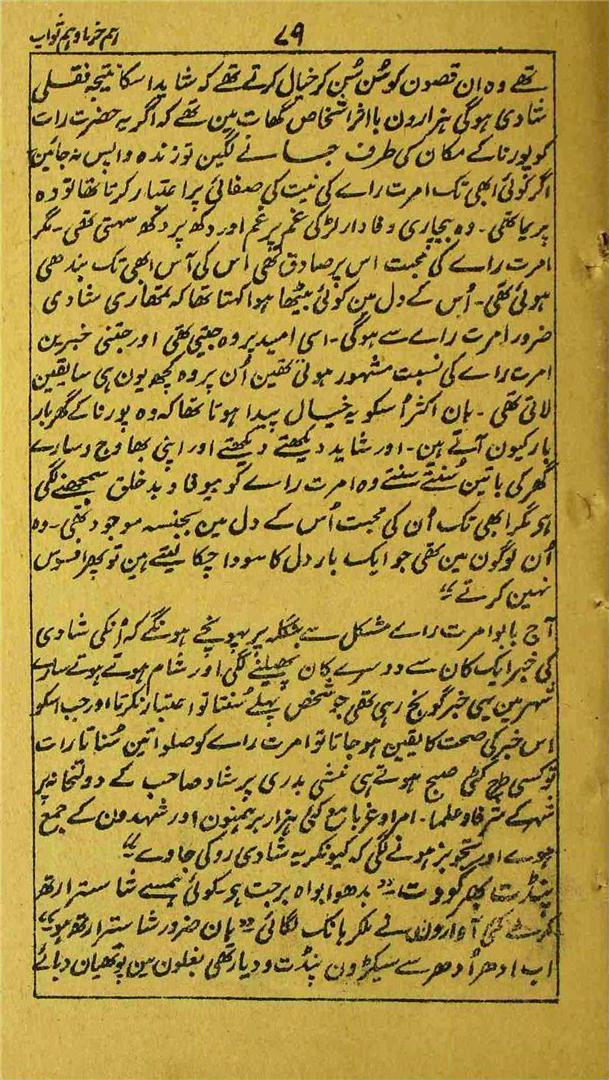 ہم خرما و ہم ثواب
۷۹
تھے وہ ان قصون کو سُن سُن کر خیال کرتے تھے کہ شاید اسکا نتیجہ نقلی
شادی ہوگی ہزارون با اثر اشخاص گھات مین تھے کہ اگر یہ حضرت رات
کو پورنا کے مکان کی طرف جانے لگین تو زندہ واپس نہ جائین
اگر کوئی ابھی تک امرت رائے کی نیت کی صفائی پر اعتبار کرتا تھا تو وہ
پریما تھی ۔ وہ بیچاری وفادار لڑکی غم پر غم اور دکھ پر دکھ سہتی تھی ۔ مگر
امرت رائے کی محبت اس پر صادق تھی اس کی آس ابھی تک بندھی
ہوئی تھی ۔ اُس کے دل مین کوئی بیٹھا ہوا کہتا تھا کہ تمھاری شادی
ضرور امرت رائے سے ہوگی ۔ اسی امید پر وہ جیتی تھی اور جتنی خبرین
امرت رائے کی نسبت مشہور ہوتی تھین اُن پر وہ کچھ یون ہی سا یقین
لاتی تھی ۔ ہان اکثر اُسکو یہ خیال پیدا ہوتا تھا کہ وہ پورنا کے گھر بار
بار کیون آتے ہین ۔ اور شاید دیکھتے دیکھتے اور اپنی بھاوج و سارے
گھر کی باتین سُنتے سُنتے وہ امرت رائے کو بیوفا و بدخلق سمجھنے لگی
ہو مگر ابھی تک اُن کی محبت اُس کے دل مین بجنسہ موجود تھی ۔ وہ
اُن لوگون مین تھی جو ایک بار دل کا سودا چکا لیتے ہین تو پھر افسوس
نہین کرتے ؛؛
آج بابو امرت رائے مشکل سے بنگلہ پر پہونچے ہونگے کہ اُنکی شادی
کی خبر ایک کان سے دوسرے کان پھیلنے لگی اور شام ہوتے ہوتے سارے
شہر مین یہی خبر گونج رہی تھی جو شخص پہلے سُنتا تو اعتبار نکرتا اور جب اسکو
اس خبر کی صحت کا یقین ہو جاتا تو امرت رائے کو صلواتین سُناتا رات
تو کسی طرح کٹی صبح ہوتے ہی منشی بدری پرشاد صاحب کے دولتخانہ پر
شہر کے شرفا و علما ۔ امرا و غربا مع کئی ہزار برہمنون اور شہدون کے جمع
ہوے اور تجویز ہونے لگی کہ کیونکر یہ شادی روکی جاوے ؛؛
پنڈت بھرگودت ۔ ’’بدھوا بواہ برجت ہو کوئی ہمسے شاسترارتھ
کرلے کئی آوازون نے ملکر ہانک لگائی ’’ہان ضرور شاسترارتھ ہو‘‘
اب ادھر اُدھر سے سیکڑون پنڈت ودیارتھی بغلون مین پوتھیان دبائے